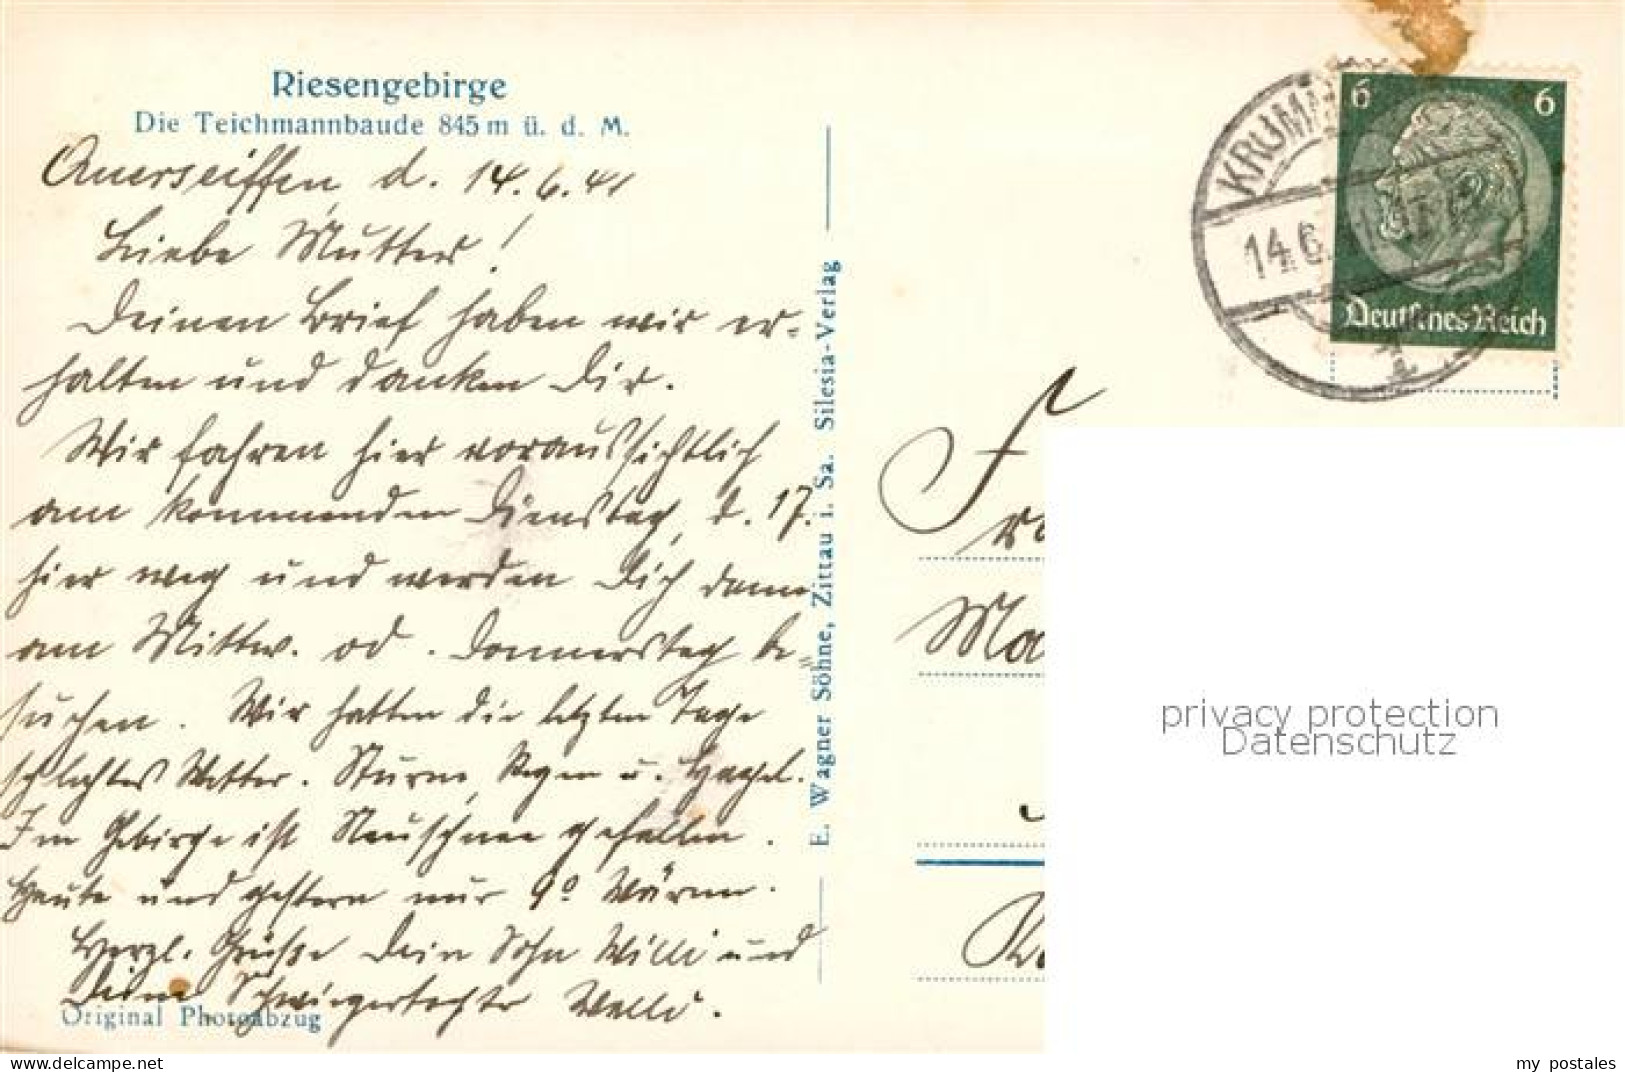 Riesengebirge
Die Teichmannbaude 845 m ü. d. M.
Querseiffen, d. 14.6.41
Liebe Mutter!
Deinen Brief haben wir er-
halten und danken Dir.
Wir fahren hier voraussichtlich
am kommenden Dienstag, d. 17.
hier weg und werden Dich dann
am Mittw. od. Donnerstag be-
suchen. Wir hatten die letzten Tage
schlechtes Wetter. Sturm, Regen u. Hagel.
Im Gebirge ist Neuschnee gefallen.
Heute und gestern nur 9° Wärme.
Herzl. Grüße Dein Sohn Willi und
Deine Schwiegertochter
Original Photoabzug
E. Wagner Söhne, Zittau i. Sa. Silesia-Verlag
KRUMM
14.6.
1
6 6
Deutsches Reich
F
Ma
privacy protection
Datenschutz
my postales